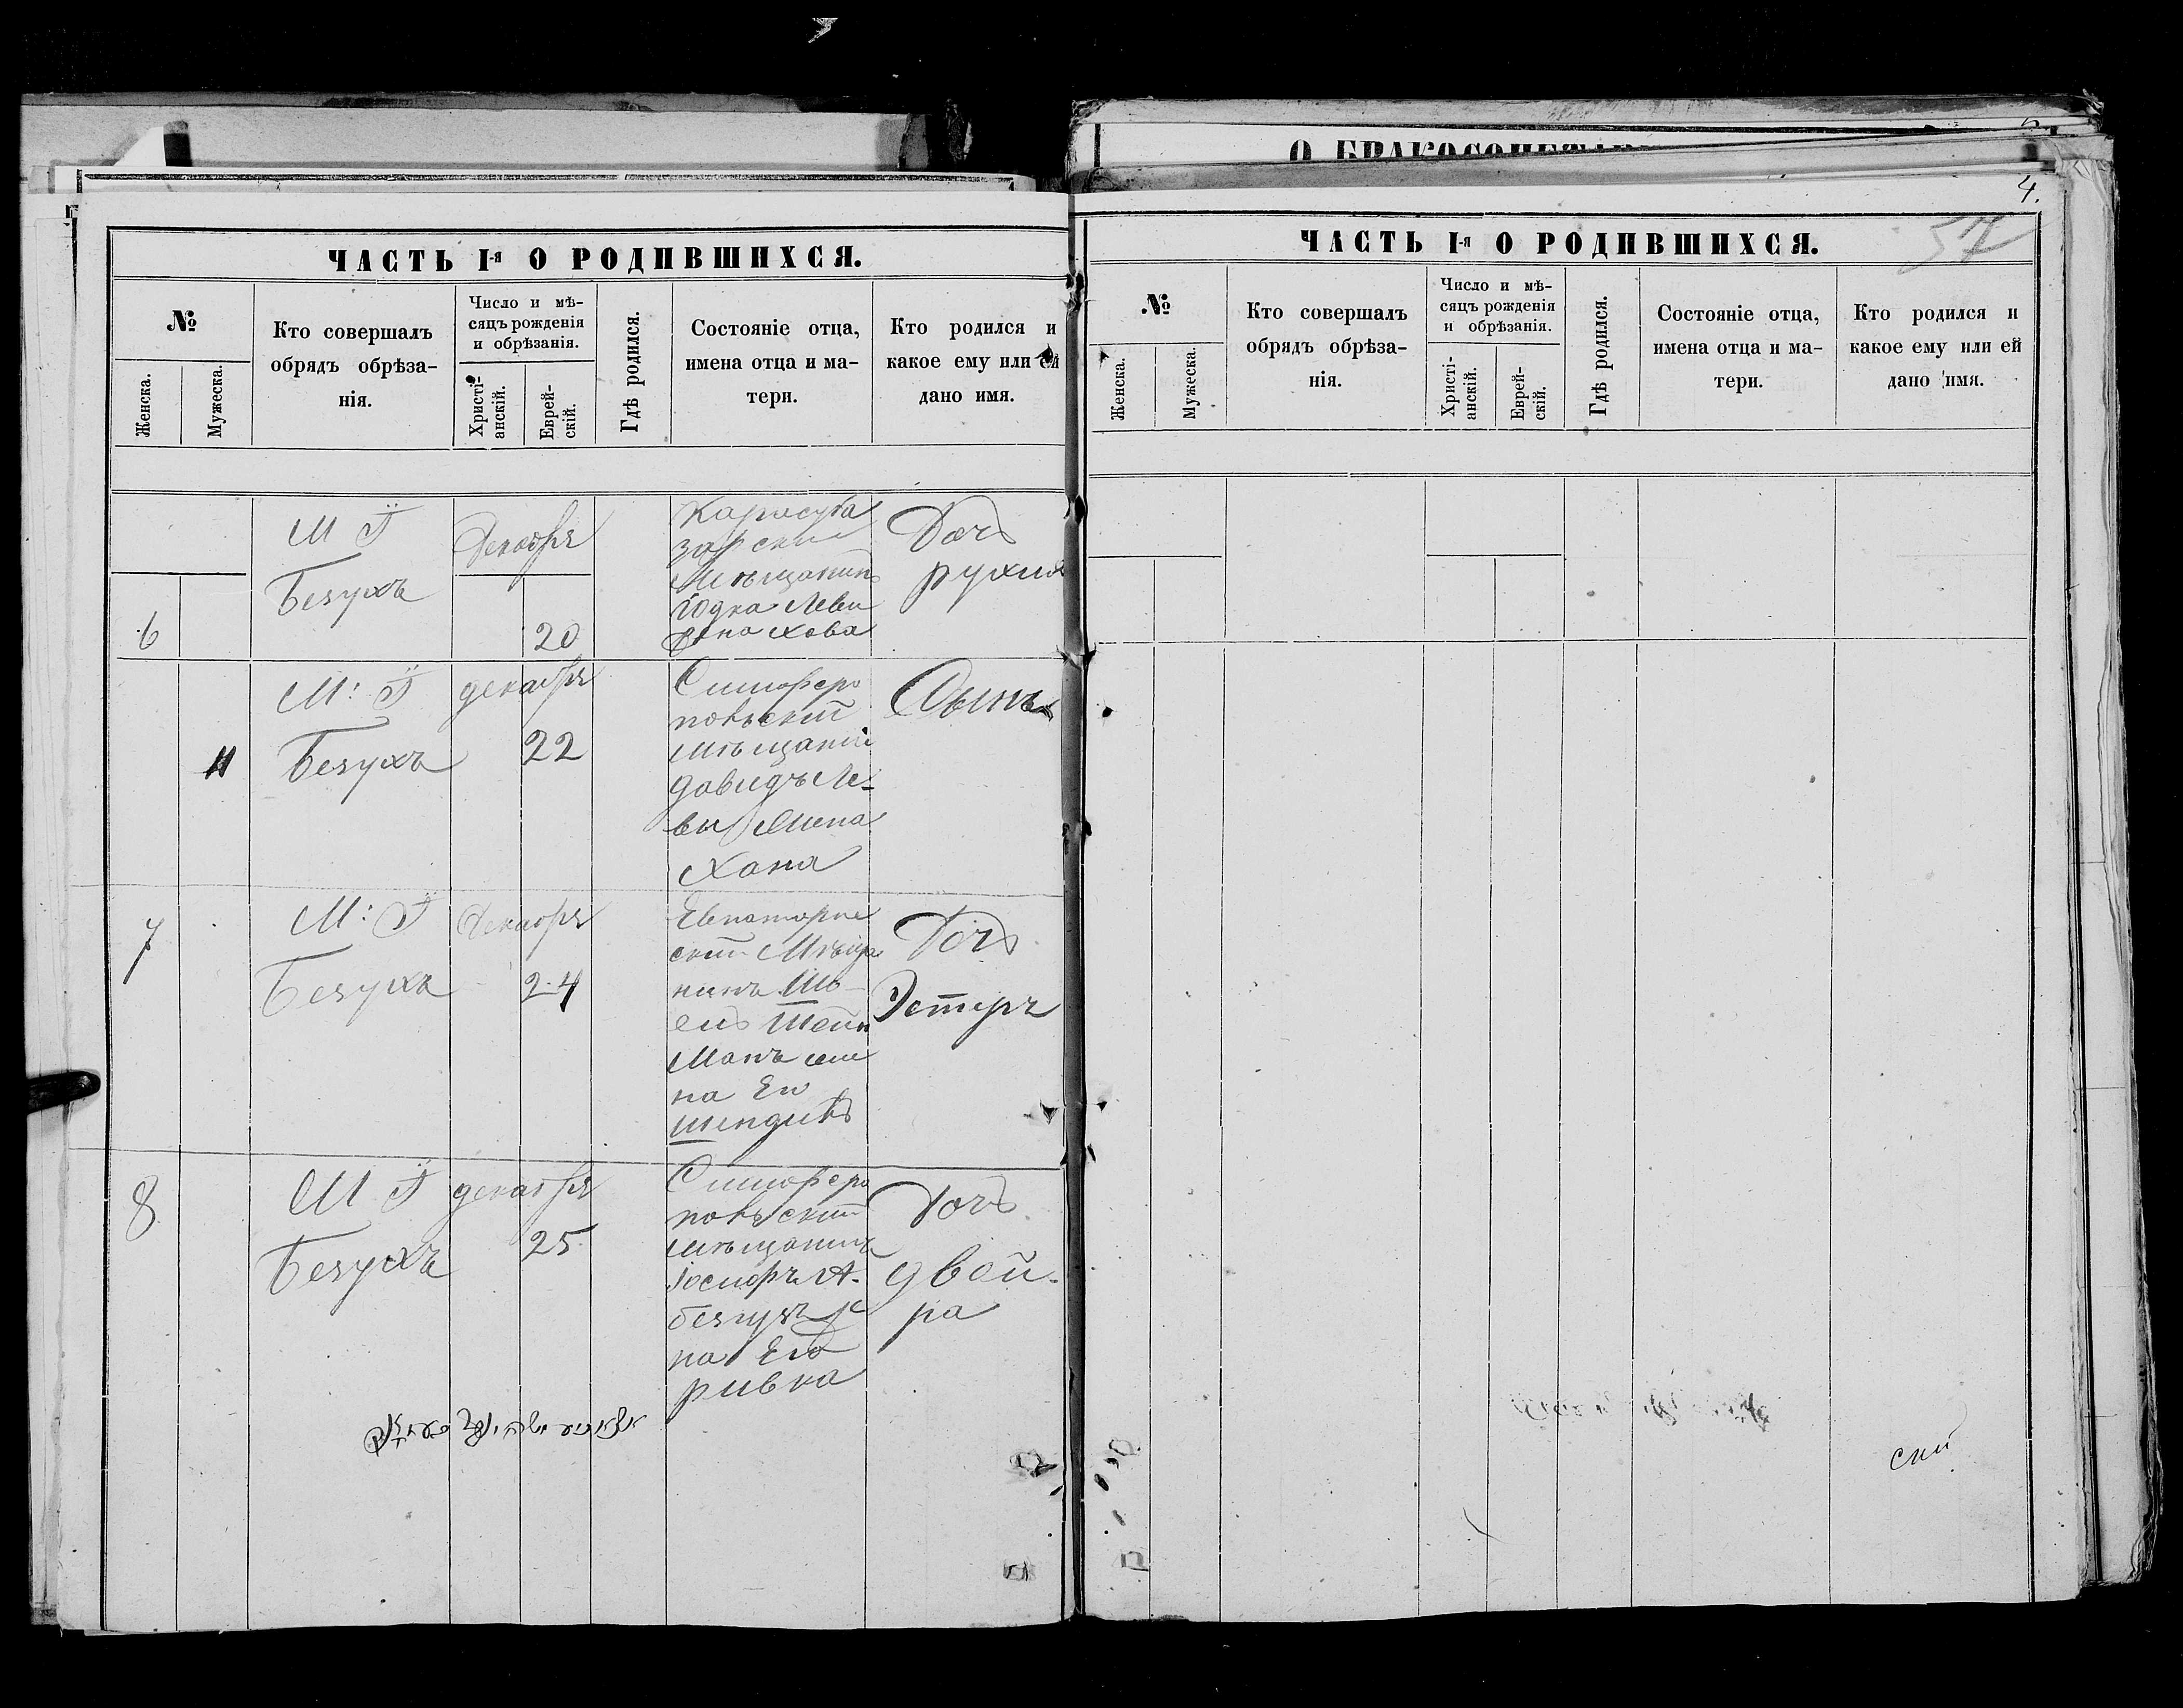 О БРАКОСОЧЕТАВ
4.
57
ЧАСТЬ I-я О РОДИВШИХСЯ.
№
Женска.
Мужеска.
Кто совершалъ
обрядъ обрѣза-
нія.
Число и мѣ-
сяцъ рожденія
и обрѣзанія.
Христі-
анскій.
Еврей-
скій.
Гдѣ родился.
Состояніе отца,
имена отца и ма-
тери.
Кто родился и
какое ему или ей
дано имя.
6
М Г
Безухъ
Декабря
20
Карасуба
зарские
Мѣщанинъ
Юдка Леви
Хава
Дочь
рухля
11
М: Г
Безухъ
декабря
22
Симферо
польский
мѣщанин
давидъ Ле-
вы
Хана
Сынъ
7
М: Г
Безухъ
Декабря
24
Евпаторие
ский Мѣща
нинъ Шо-
елъ Штейн
Манъ
на Ен
шендиль
Дочь
Эстеръ
8
М Г
Безухъ
декабря
25
Симферо
польский
мѣщанинъ
Іосифъ А.
безухъ же
на Его
ривка
Дочь
двой-
ра
ЧАСТЬ I-я О РОДИВШИХСЯ.
№
Женска.
Мужеска.
Кто совершалъ
обрядъ обрѣза-
нія.
Число и мѣ-
сяцъ рожденія
и обрѣзанія.
Христі-
анскій.
Еврей-
скій.
Гдѣ родился.
Состояніе отца,
имена отца и ма-
тери.
Кто родился и
какое ему или ей
дано имя.
ский